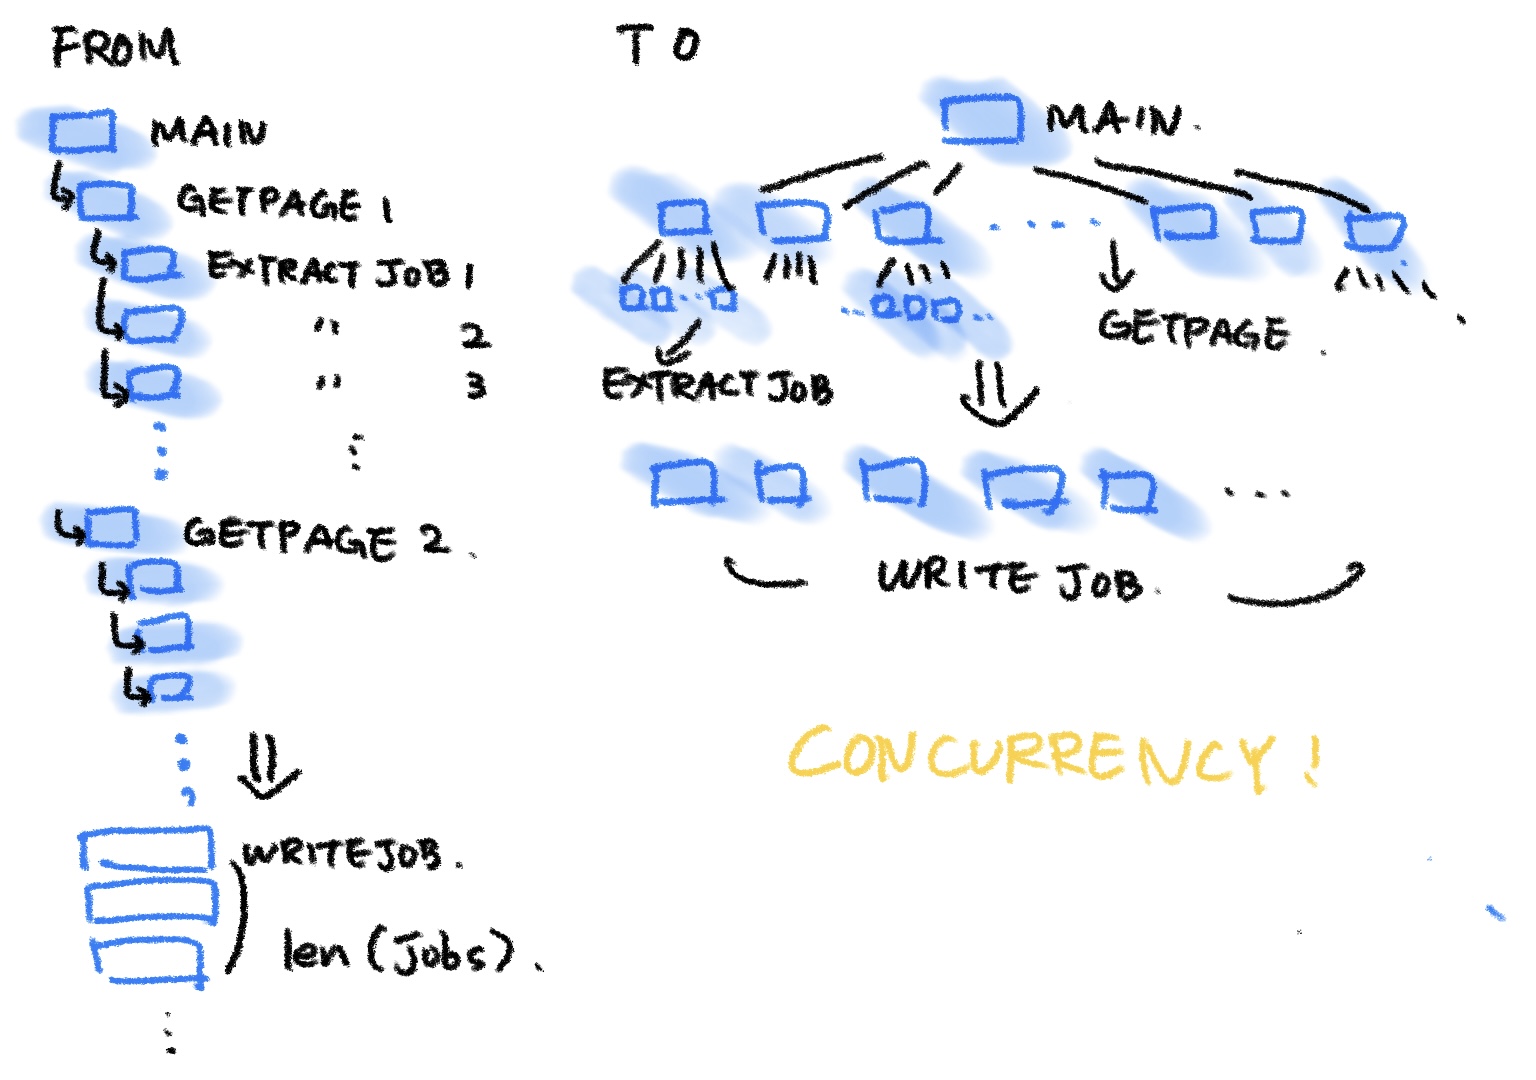 FROM
MAIN
GETPAGE 1
EXTRACT JOB 1
" 2
" 3
⋮
GETPAGE 2.
WRITEJOB.
len(Jobs).
⋮
TO
MAIN.
....
GETPAGE.
EXTRACT JOB
...
WRITE JOB.
CONCURRENCY!